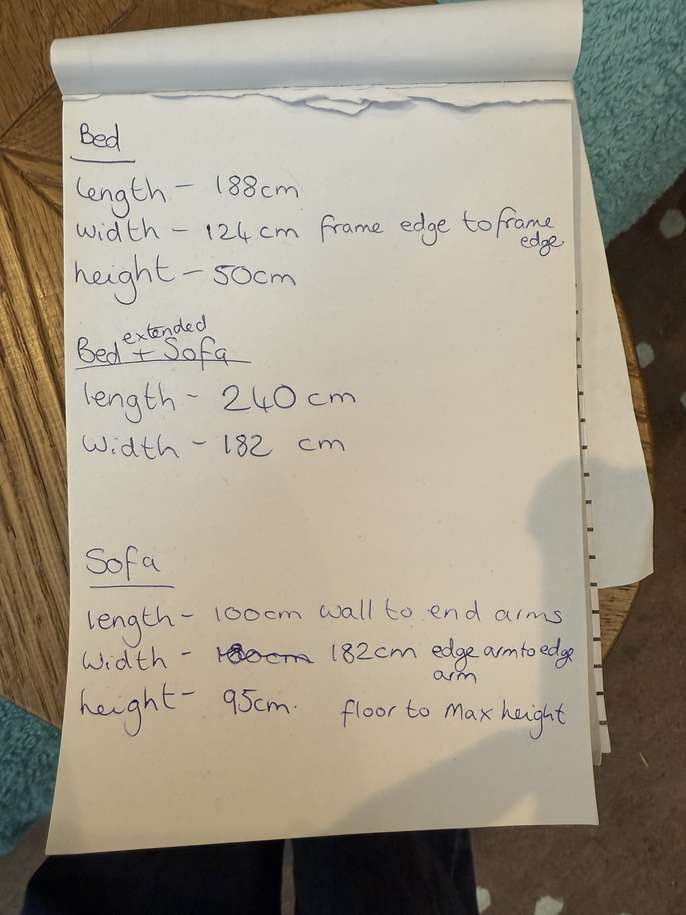 Bed
length - 188cm
width - 124cm frame edge to frame
edge
height - 50cm
extended
Bed + Sofa
length - 240cm
Width - 182 cm
Sofa
length - 100cm wall to end arms
Width - 180cm 182cm edge arm to edge
arm
height - 95cm. floor to Max height